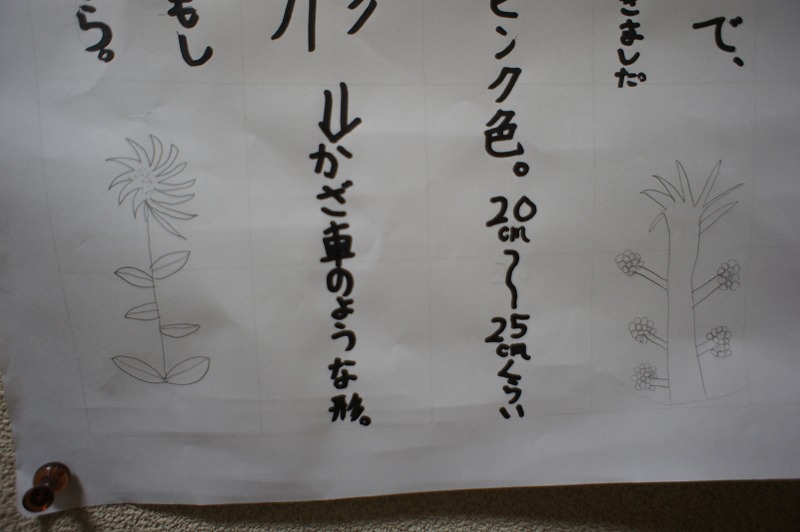 で、
きました。
ピンク色。20cm〜25cmくらい
⇓かざ車のような形。
もし
ら。